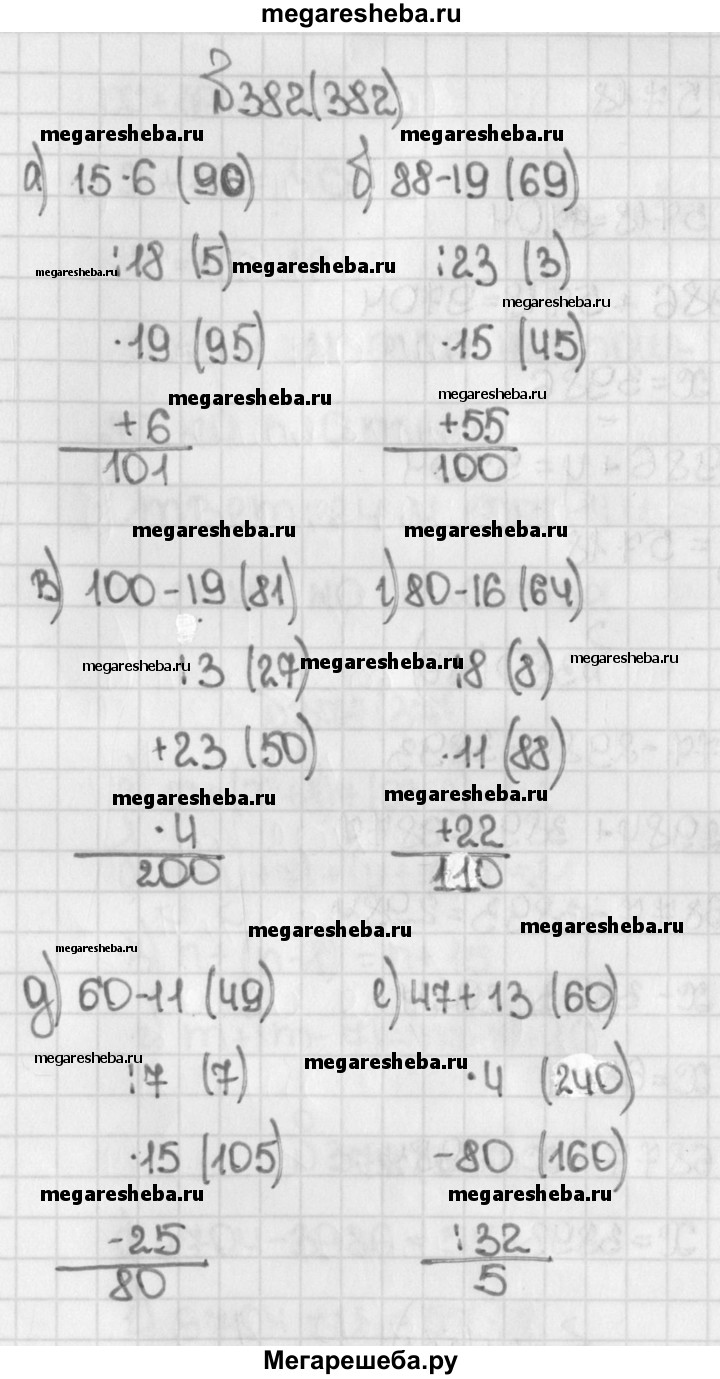 megaresheba.ru
№382(382)
megaresheba.ru megaresheba.ru
а) 15·6 (90) б) 88-19 (69)
megaresheba.ru :18 (5) megaresheba.ru :23 (3)
megaresheba.ru
·19 (95) ·15 (45)
megaresheba.ru megaresheba.ru
+6 +55
101 100
megaresheba.ru megaresheba.ru
в) 100-19 (81) г) 80-16 (64)
megaresheba.ru :3 (27) megaresheba.ru :8 (8) megaresheba.ru
+23 (50) ·11 (88)
megaresheba.ru megaresheba.ru
·4 +22
200 110
megaresheba.ru megaresheba.ru
megaresheba.ru
д) 60-11 (49) е) 47+13 (60)
megaresheba.ru :7 (7) megaresheba.ru ·4 (240)
·15 (105) -80 (160)
megaresheba.ru megaresheba.ru
-25 :32
80 5
Мегарешеба.ру